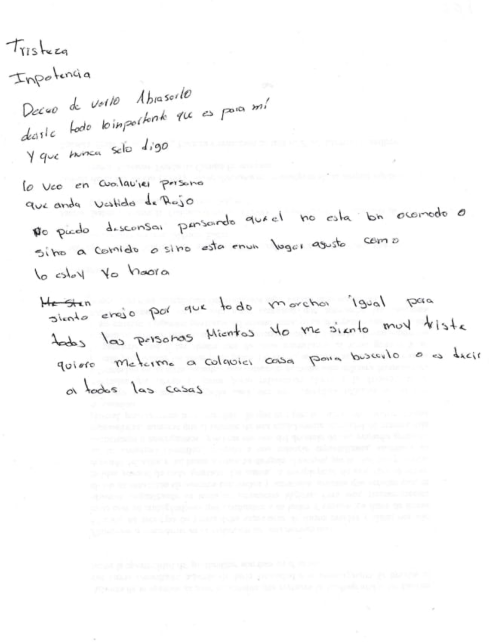 Tristeza
Inpotencia
Deceo de verlo Abrasarlo
desirle todo lo importante que es para mí
Y que nunca selo digo
lo veo en cualquier persona
que anda vestido de Rojo
No puedo descansar pensando que el no esta bn acomodo o
sino a comido o sino esta en un lugar agusto como
lo estoy Yo haora
Me sien
siento enojo por que todo marcha igual para
todas las personas Mientas Yo me siento muy triste
quiero meterme a colquier casa para buscarlo o es decir
a todas las casas